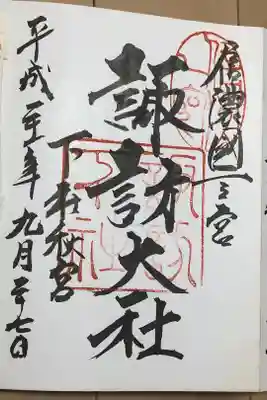 信濃國一之宮
諏訪大社
下社秋宮
平成二十一年九月二十七日